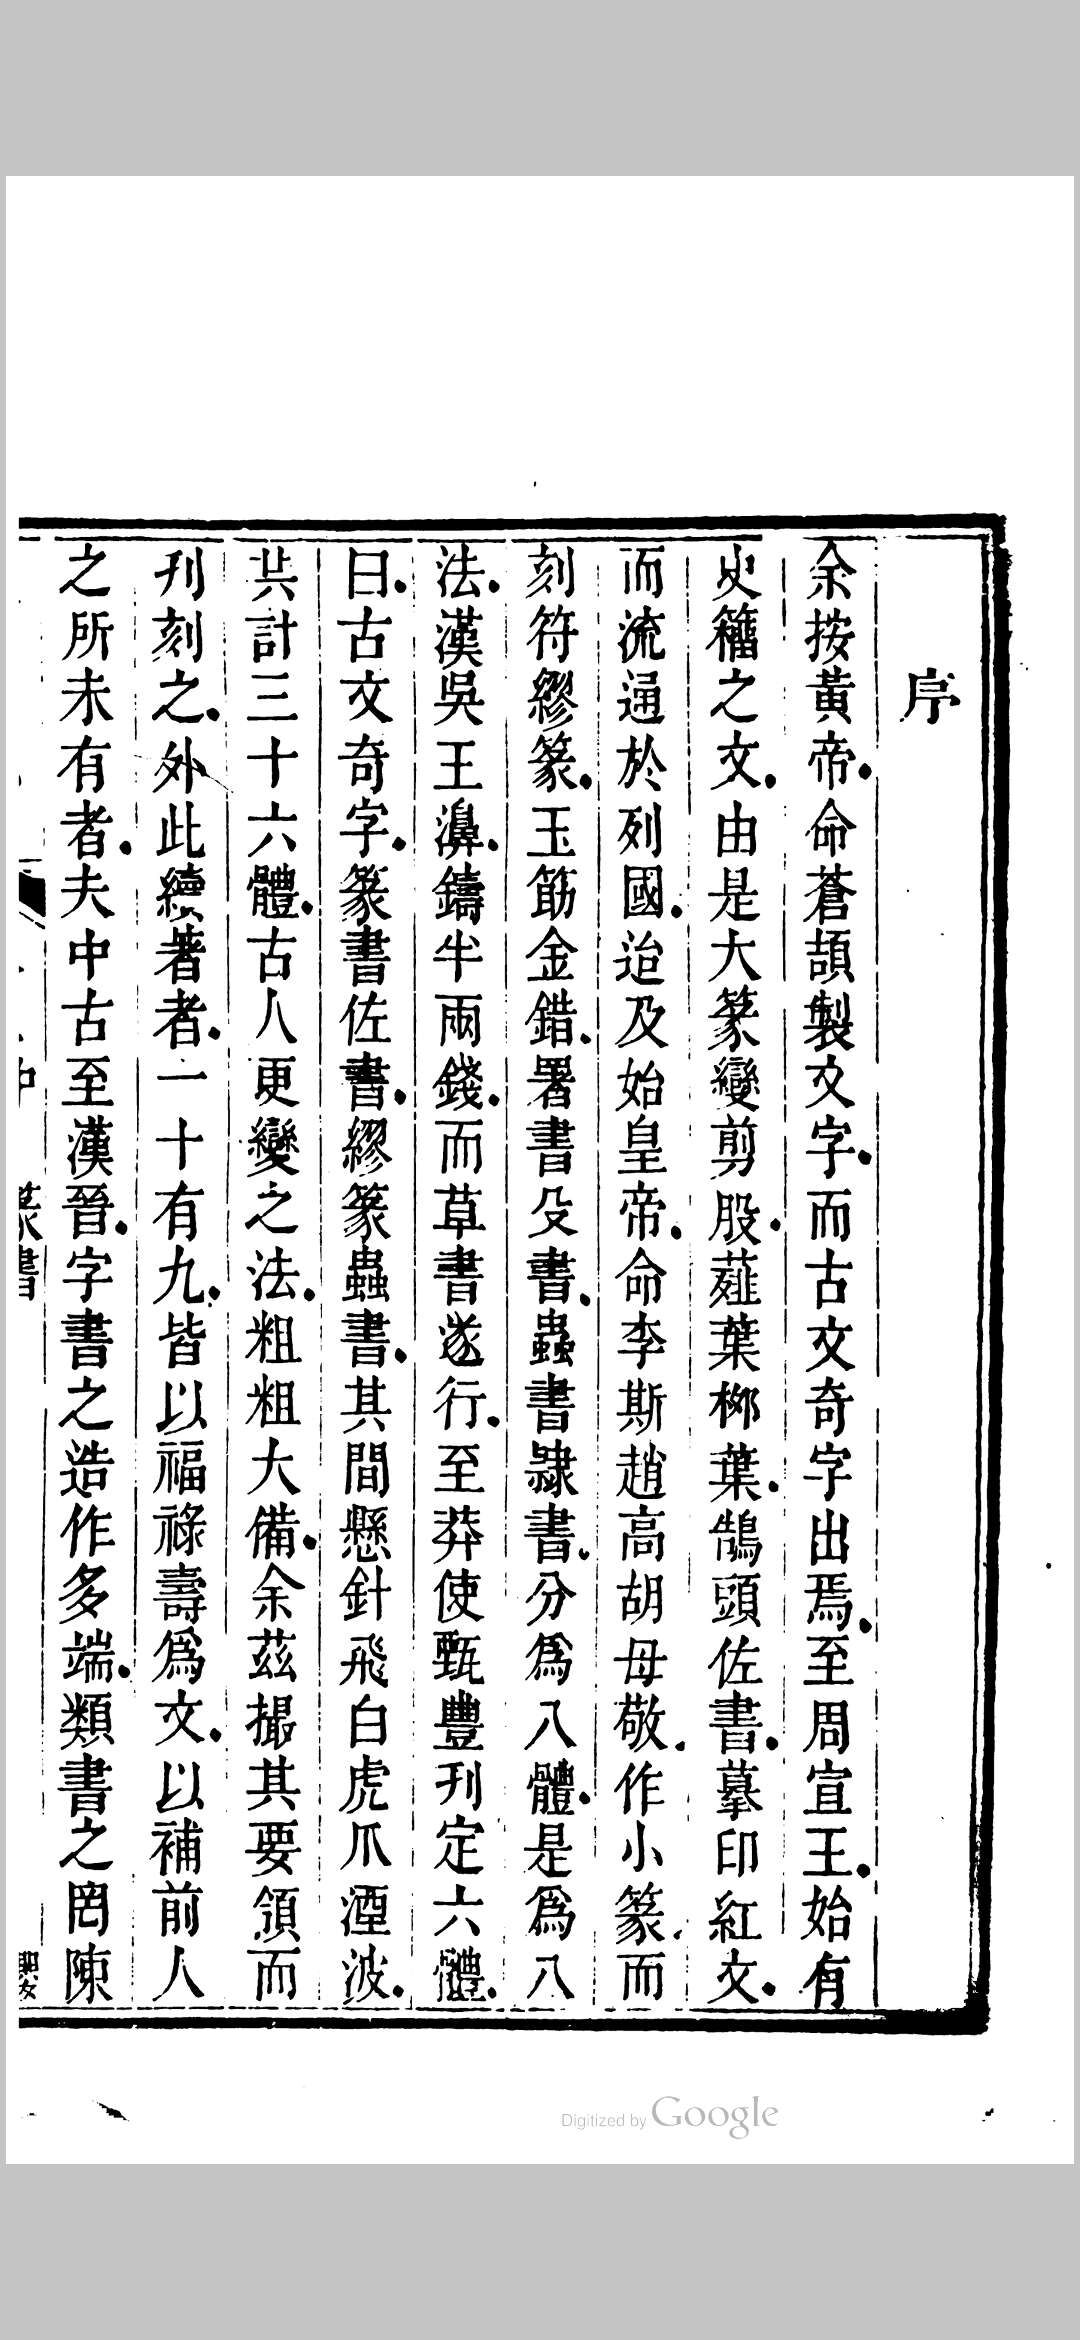 序
余按黃帝命蒼頡製文字而古文奇字出焉至周宣王始有
史籀之文由是大篆變剪股薤葉柳葉鵠頭佐書摹印紅文
而流通於列國迨及始皇帝命李斯趙高胡母敬作小篆而
刻符繆篆玉筯金錯署書殳書蟲書隷書分爲八體是爲八
法漢吳王濞鑄半兩錢而草書遂行至莽使甄豐刋定六體
曰古文奇字篆書佐書繆篆蟲書其間懸針飛白虎爪湮波
共計三十六體古人更變之法粗粗大備余茲撮其要領而
刋刻之外此續著者一十有九皆以福祿壽爲文以補前人
之所未有者夫中古至漢晉字書之造作多端類書之罔陳
篆書
Digitized by Google